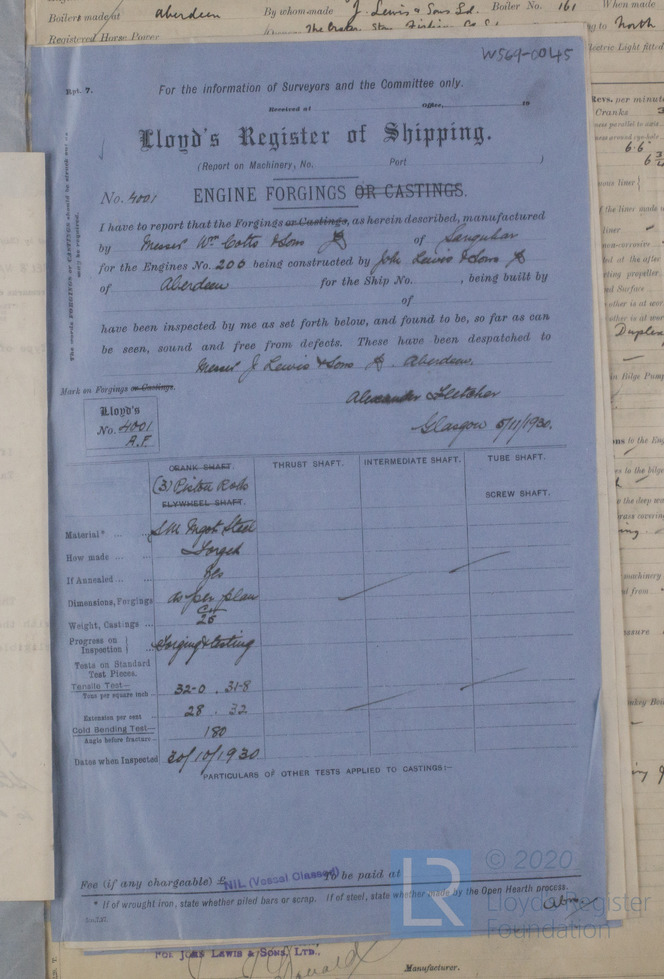 Boilers made at Aberdeen By whom made J. Lewis & Sons Ld. Boiler No. 161 When made
Registered Horse Power Owners The Crater Stm Fishing Co. North
Electric Light fitted
W569-0045
Rpt. 7.
For the information of Surveyors and the Committee only.
Received at Office, 19
Lloyd's Register of Shipping.
(Report on Machinery, No. Port )
No. 4001 ENGINE FORGINGS OR CASTINGS.
I have to report that the Forgings or Castings, as herein described, manufactured
by Messrs Wm Cotts & Sons of Sanquhar
for the Engines No. 206 being constructed by John Lewis & Sons
of Aberdeen for the Ship No. , being built by
of
have been inspected by me as set forth below, and found to be, so far as can
be seen, sound and free from defects. These have been despatched to
Messrs J Lewis & Sons Aberdeen.
The words FORGINGS or CASTINGS should be struck out as may be required.
Mark on Forgings or Castings.
Alexander Fletcher
Lloyd's
No. 4001
A.F
Glasgow 5/11/1930.
CRANK SHAFT. THRUST SHAFT. INTERMEDIATE SHAFT. TUBE SHAFT.
(3) Piston Rods
FLYWHEEL SHAFT. SCREW SHAFT.
Material* ... S.M. Ingot Steel
How made ... Forged
If Annealed ... Yes
Dimensions, Forgings as per plan
Weight, Castings ... 26
Progress on Inspection Forging & testing
Tests on Standard
Test Pieces.
Tensile Test—
Tons per square inch 32-0 . 31-8
Extension per cent 28 . 32
Cold Bending Test—
Angle before fracture 180
Dates when Inspected 30/10/1930
PARTICULARS OF OTHER TESTS APPLIED TO CASTINGS:—
Fee (if any chargeable) £ NIL (Vessel Classed) To be paid at
* If of wrought iron, state whether piled bars or scrap. If of steel, state whether made by the Open Hearth process.
© 2020
Lloyd's Register
Foundation
LR
For John Lewis & Sons, Ltd.,
Manufacturer.
Revs. per minute
Cranks
Duplex